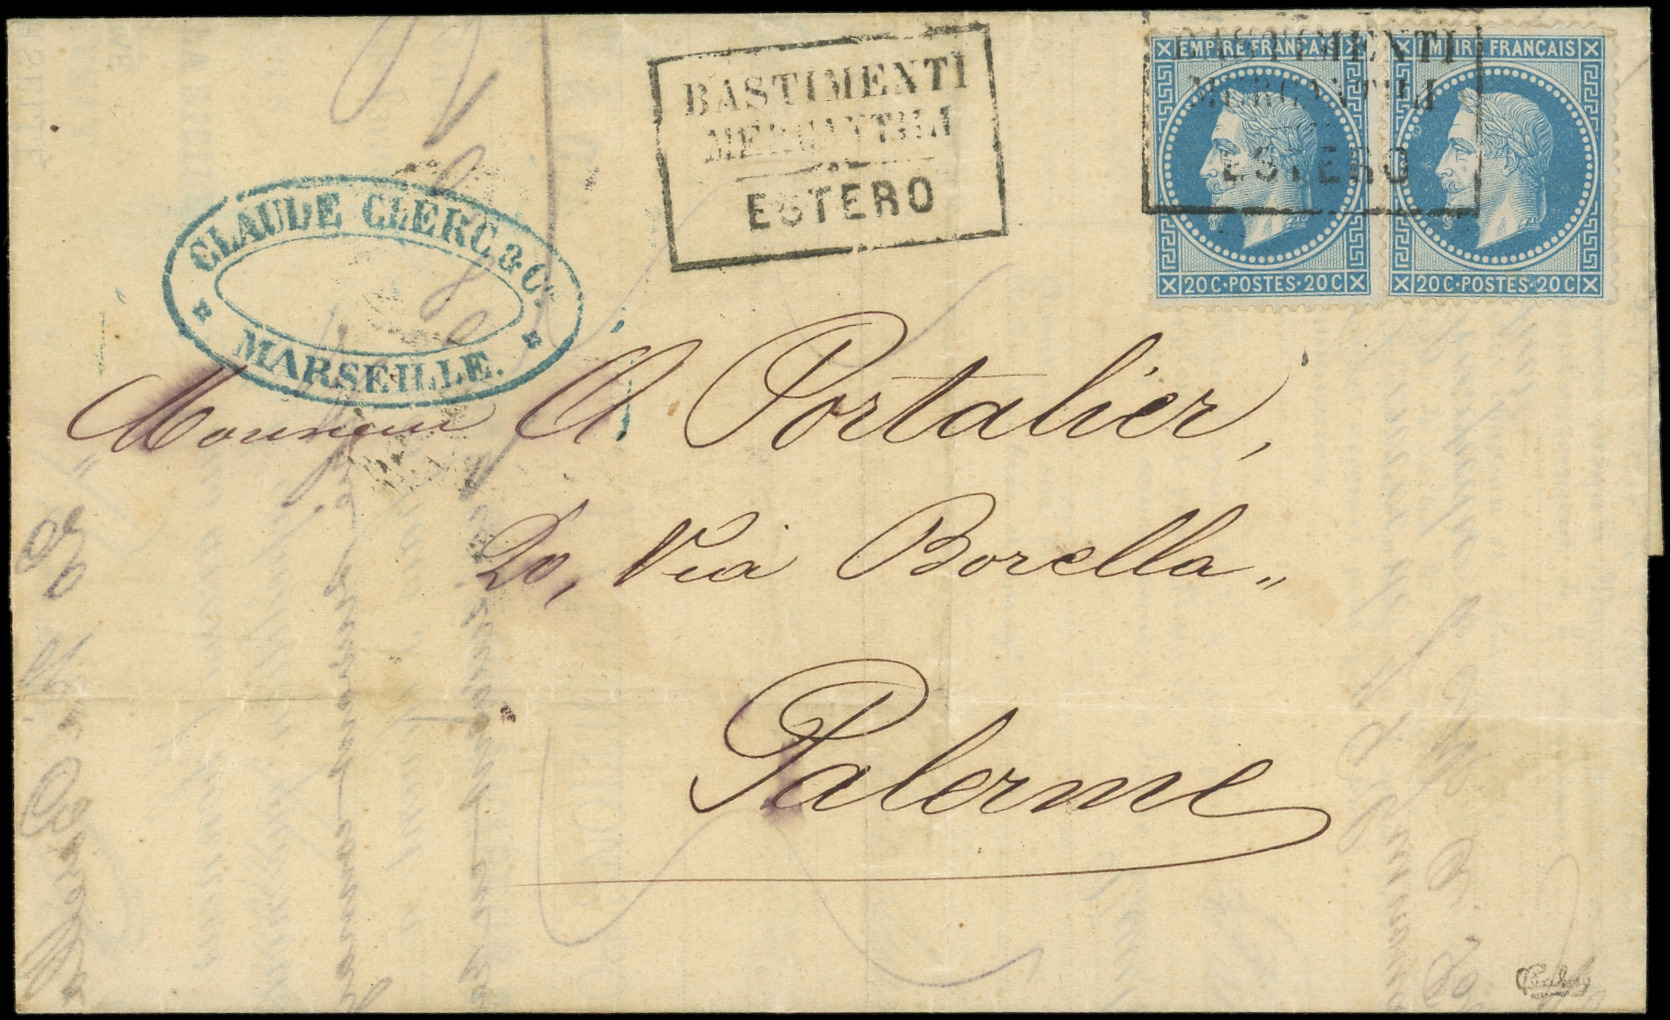 BASTIMENTI
MERCANTILI
ESTERO
BASTIMENTI
MERCANTILI
ESTERO
EMPIRE FRANÇAIS
20 C · POSTES · 20 C
EMPIRE FRANÇAIS
20 C · POSTES · 20 C
CLAUDE CLERC & Cie
MARSEILLE.
Monsieur A. Portalier,
20, Via Borella „
Palerme